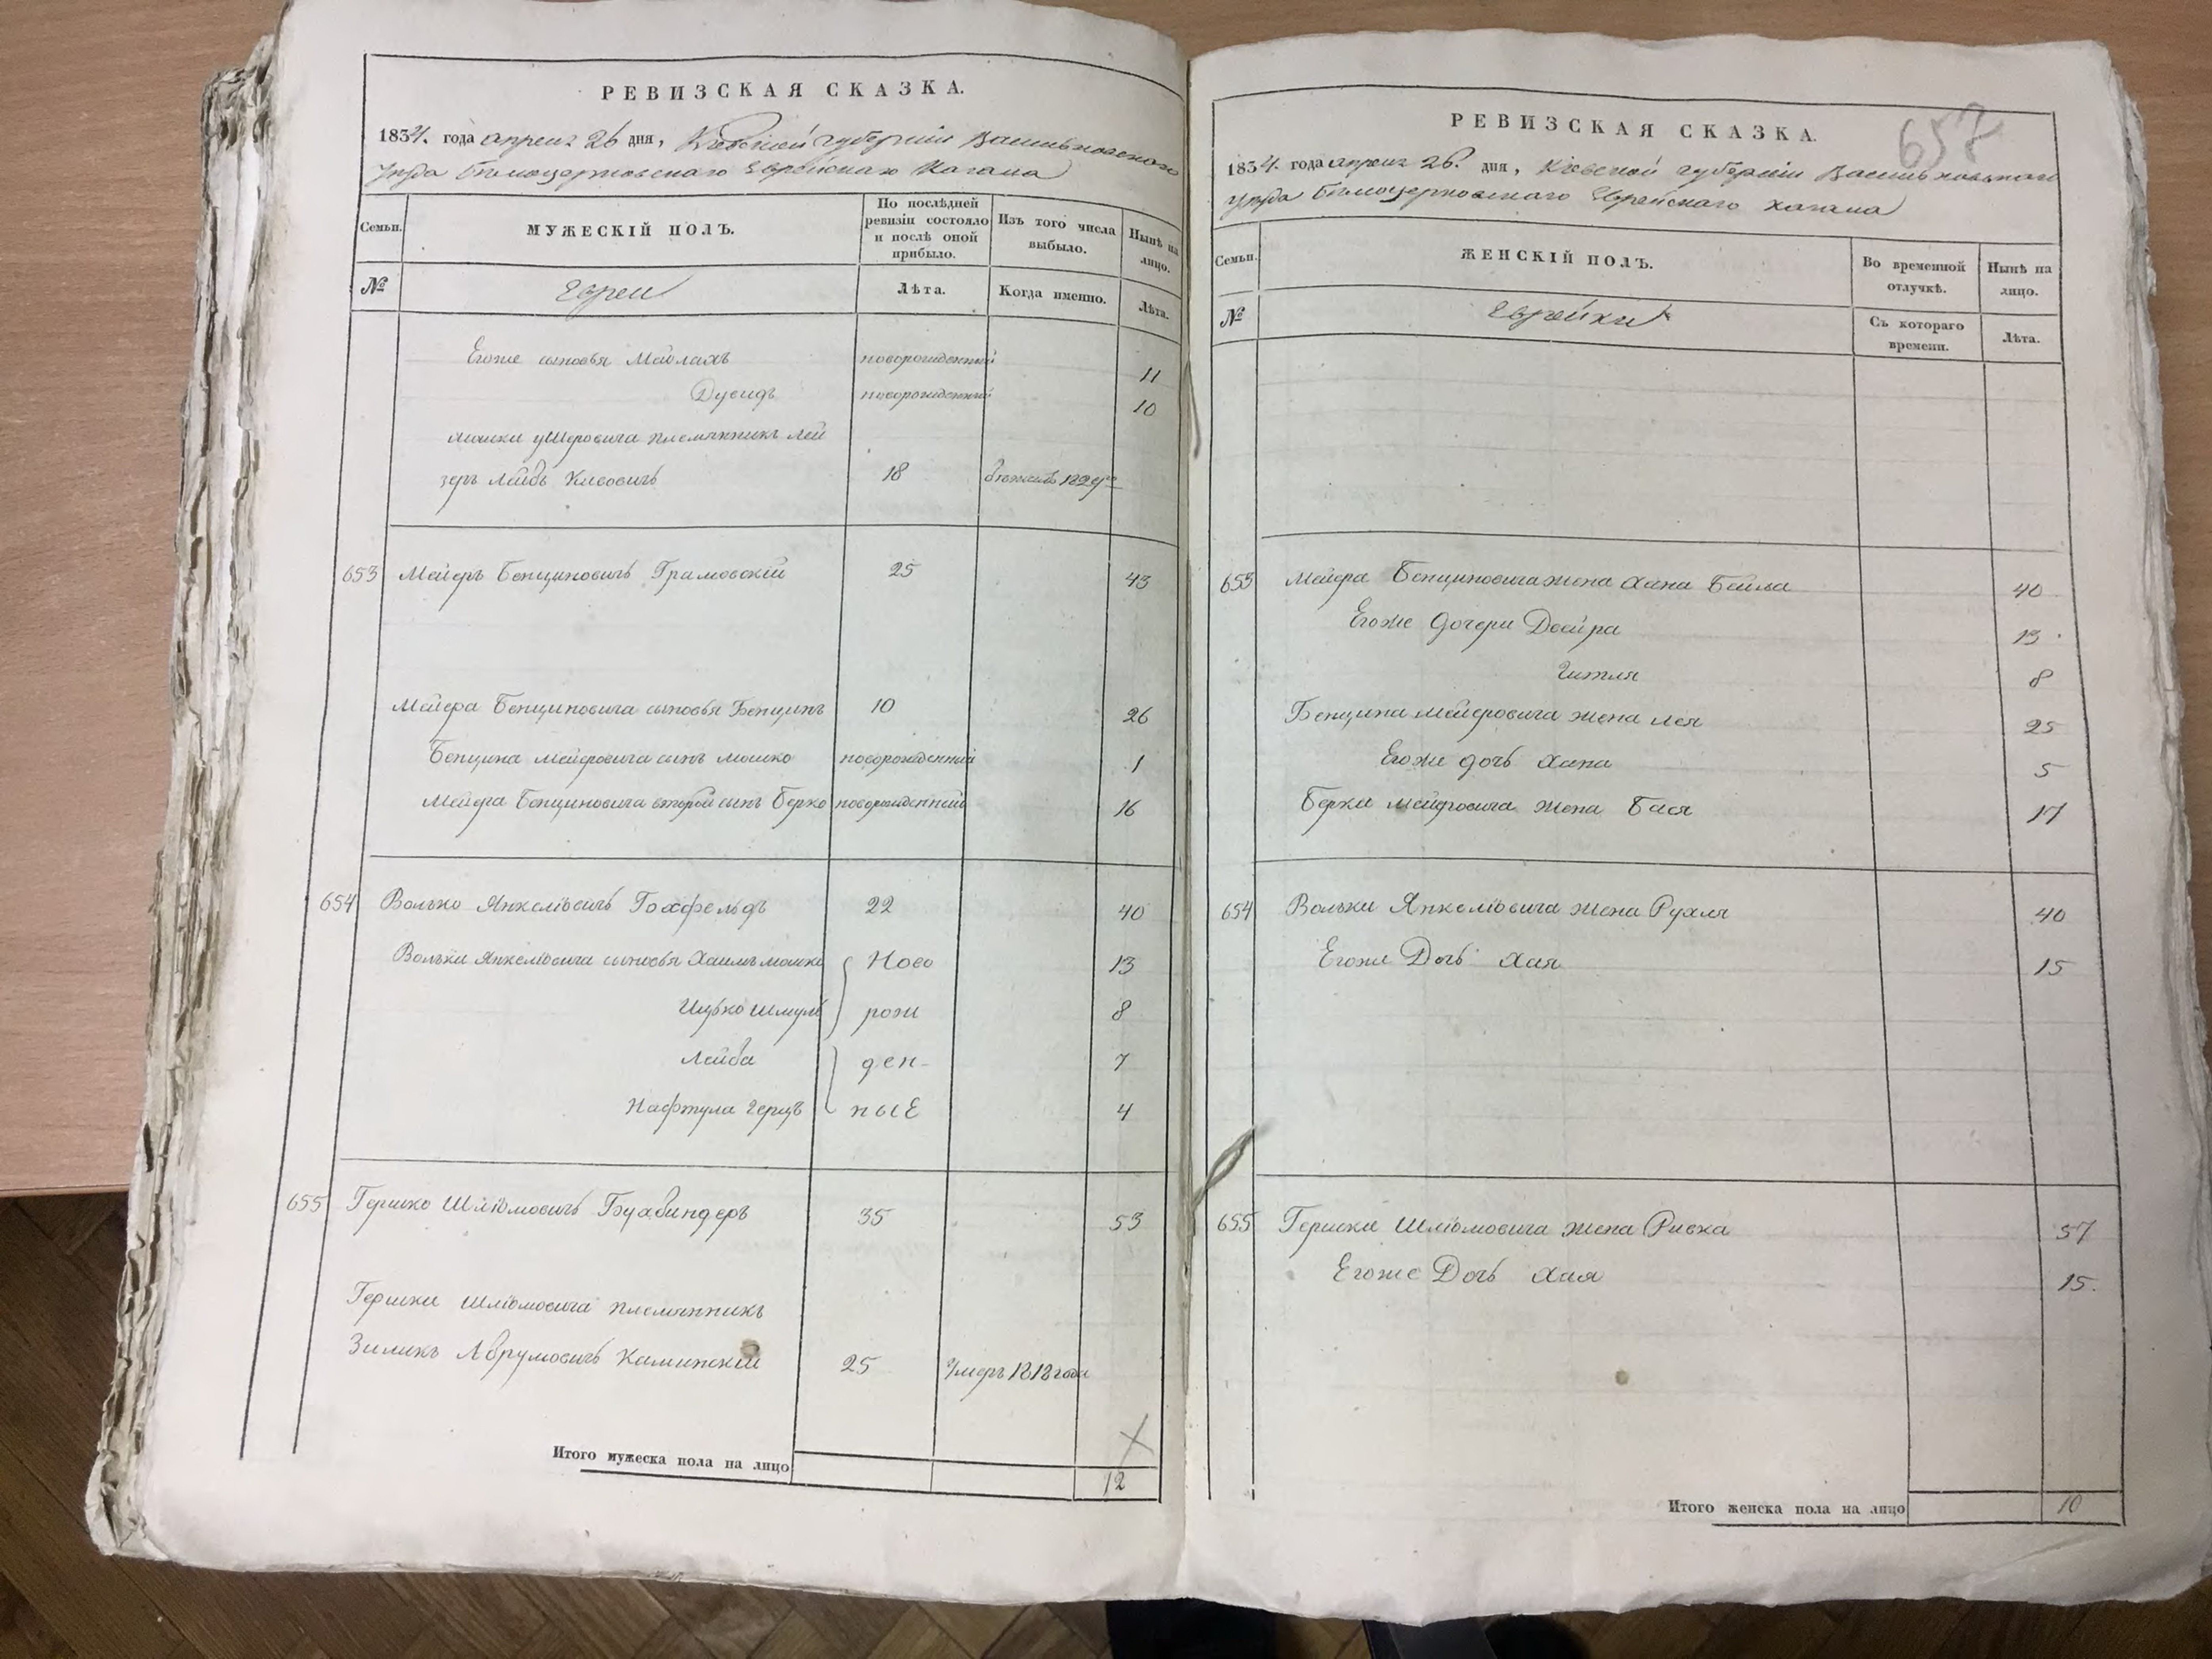 РЕВИЗСКАЯ СКАЗКА.
1834. года апреля 26 дня, Кіевской губерніи Васильковского
уезда Белоцерковскаго Еврейскаго Кагала
Семьи.
МУЖЕСКІЙ ПОЛЪ.
По послѣдней ревизіи состояло и послѣ оной прибыло.
Изъ того числа выбыло.
Нынѣ на лицо.
№
Евреи
Лѣта.
Когда именно.
Лѣта.
Егоже сыновья Мейлахъ новорожденный 11
Дувидъ новорожденный 10
Мошки Ушеровича племянникъ Лей
зеръ Лейбъ Кивовичъ 18
653 Мейеръ Бенционовичъ Грамовскій 25 43
Мейера Бенциновича сыновья Бенцинъ 10 26
Бенцина Мейеровича сынъ Мошко новорожденный 1
Мейера Бенциновича второй сынъ Берко новорожденный 16
654 Волько Янкеліовичъ Гохфельдъ 22 40
Вольки Янкеліовича сыновья Хаимъ Мошко Ново 13
Ицько Шмуль рож 8
Лейба ден- 7
Нафтула Герцъ ные 4
655 Гершко Шліомовичъ Бухбиндеръ 35 53
Гершки Шліомовича племянникъ
Зиликъ Абрумовичъ Каминскій 25 Умеръ 1818 года
Итого мужеска пола на лицо 12
657
РЕВИЗСКАЯ СКАЗКА.
1834. года апреля 26. дня, Кіевской губерніи Васильковского
уезда Белоцерковскаго Еврейскаго Кагала
Семьи.
ЖЕНСКІЙ ПОЛЪ.
Во временной отлучкѣ.
Нынѣ на лицо.
№
Еврейки
Съ котораго времени.
Лѣта.
653 Мейера Бенциновича жена Хана Бейла 40
Егоже дочери Двейра 13
Гитля 8
Бенцина Мейеровича жена Лея 25
Егоже дочь Хана 5
Берки Мейеровича жена Бася 17
654 Вольки Янкеліовича жена Рухля 40
Егоже Дочь Хая 15
655 Гершки Шліомовича жена Ривка 57
Егоже Дочь Хая 15.
Итого женска пола на лицо 10